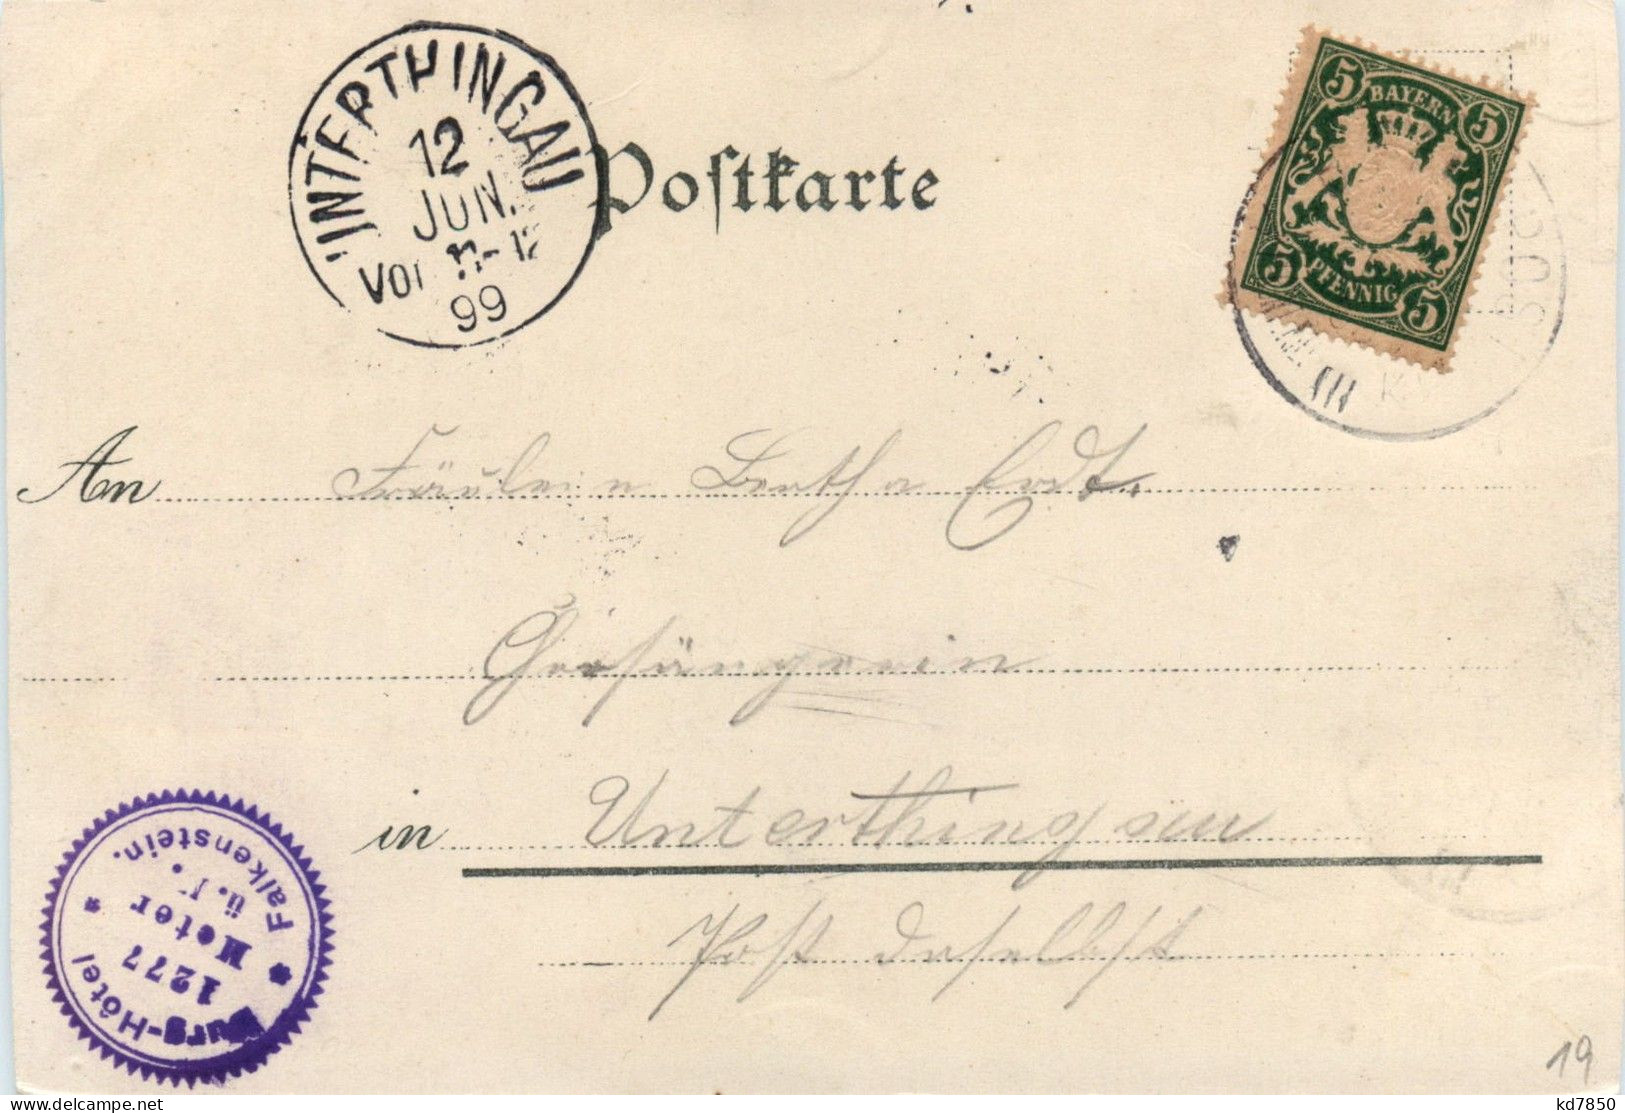 UNTERTHINGAU
12
JUN.
VOR 11-12
99
Postkarte
5 5
BAYERN
PFENNIG
5 5
An Fräulein Bertha Erdt.
in Unterthingau
Post daselbst
Burg-Hôtel
Falkenstein.
1277
Meter
19
kd7850